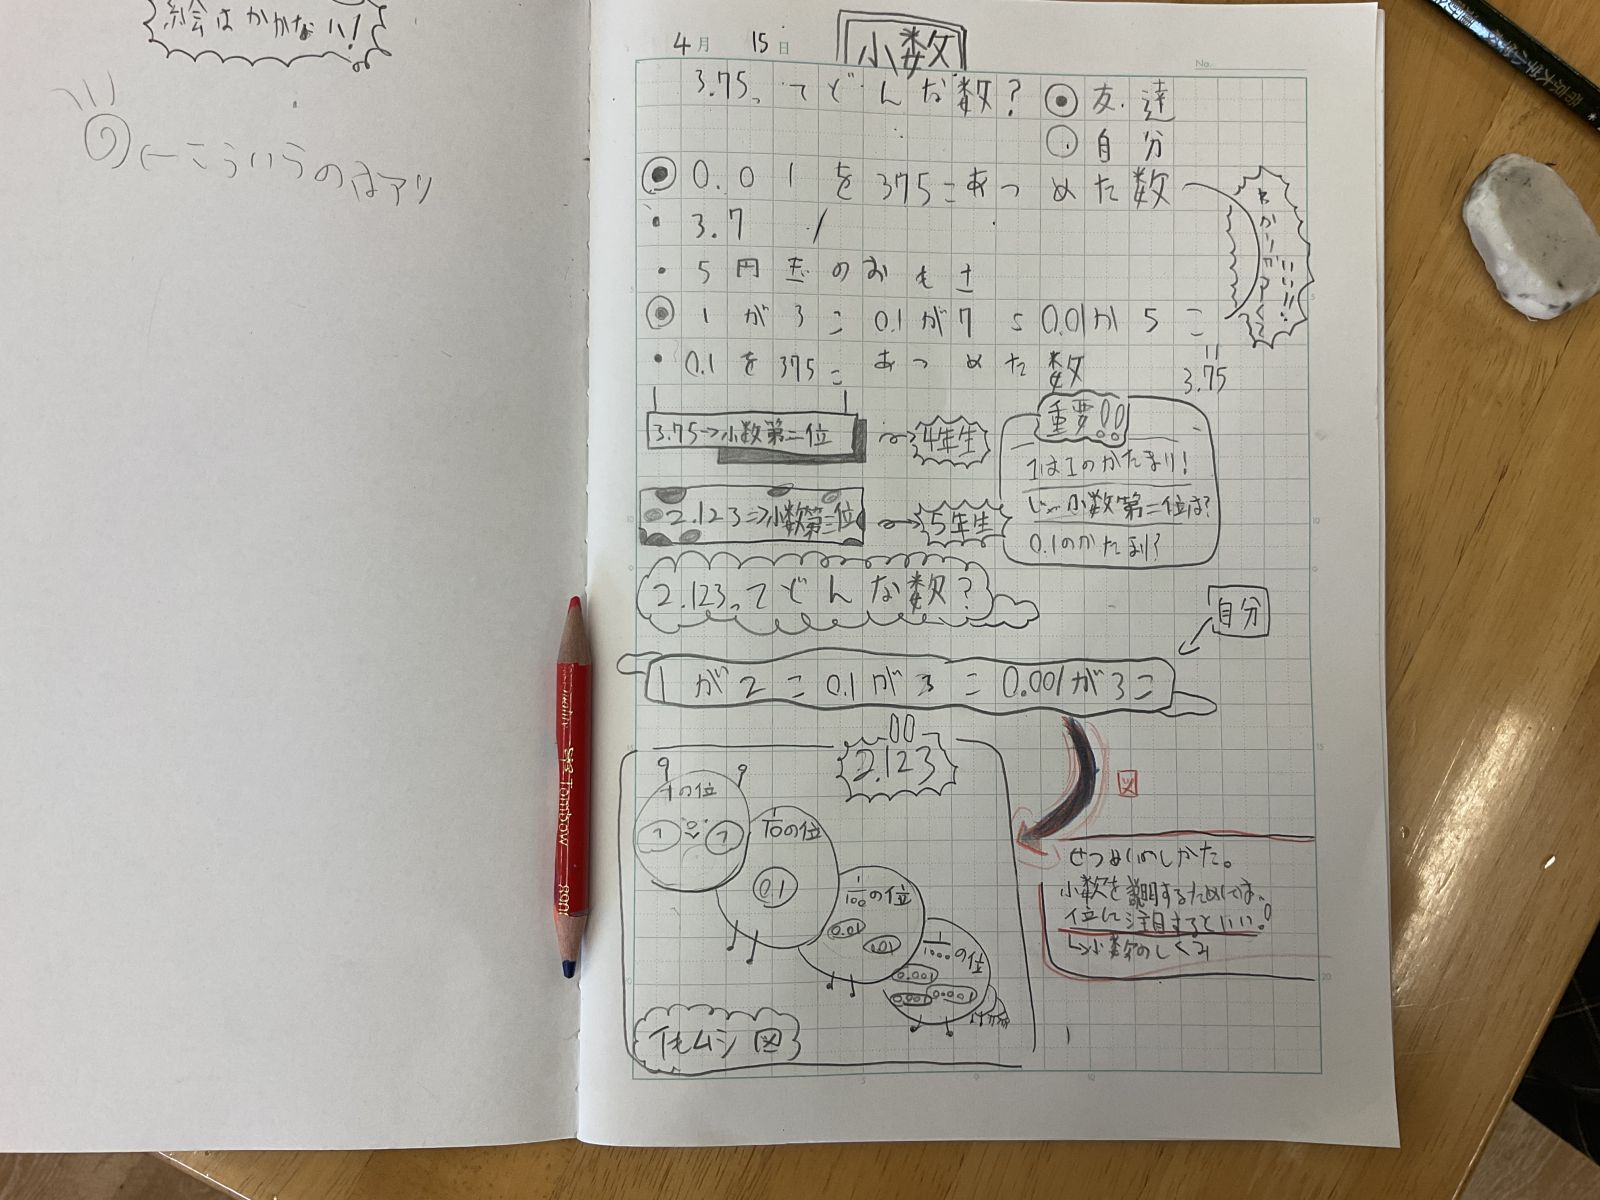 絵はかかない!
←こういうのはアリ
4月 15日
小数
No.
3.75ってどんな数?
友達
自分
0.01を375こあつめた数
3.7
5円玉のおもさ
1が3こ 0.1が7こ 0.01が5こ
3.75
0.1を375こあつめた数
わかりがアくて
いい!!
3.75→小数第二位
4年生
2.123⇒小数第三位
5年生
重要!!
1は1のかたまり!
じゃ小数第二位は?
0.1のかたまり?
2.123ってどんな数?
自分
1が2こ 0.1が3こ 0.001が3こ
2.123
1の位
1
1
1/10の位
0.1
1/100の位
0.01
0.01
1/1000の位
0.001
0.001
0.001
イモムシ図
せつめいのしかた。
小数を説明するためには、
位に注目するといい!
↳小数のしくみ
Tombow